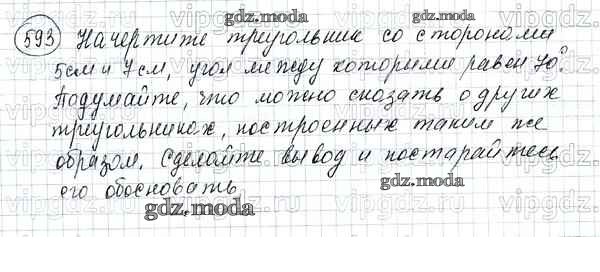 593 Начертите треугольник со сторонами
5см и 7см, угол между которыми равен 70°.
Подумайте, что можно сказать о других
треугольниках, построенных таким же
образом. Сделайте вывод и постарайтесь
его обосновать
gdz.moda
gdz.moda
gdz.moda
gdz.moda
gdz.moda